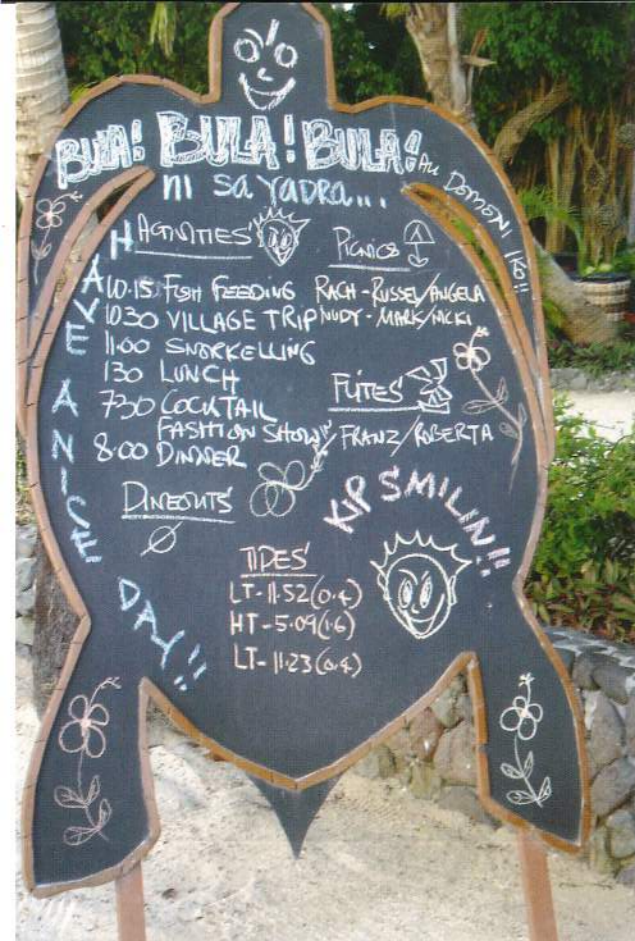 BULA! BULA! BULA! Au DOMONI IKO!!
ni sa YADRA...
HAVE A NICE DAY!!
ACTIVITIES
10.15 FISH FEEDING
1030 VILLAGE TRIP
11.00 SNORKELLING
130 LUNCH
730 COCKTAIL
FASHION SHOW
8.00 DINNER
PICNICS
RACH - RUSSEL/ANGELA
NUDY - MARK/NICKI
FLITES
FRANZ/ROBERTA
DINEOUTS
Ø
KIP SMILIN!!
TIDES
LT - 11.52 (0.4)
HT - 5.09 (1.6)
LT - 11.23 (0.4)